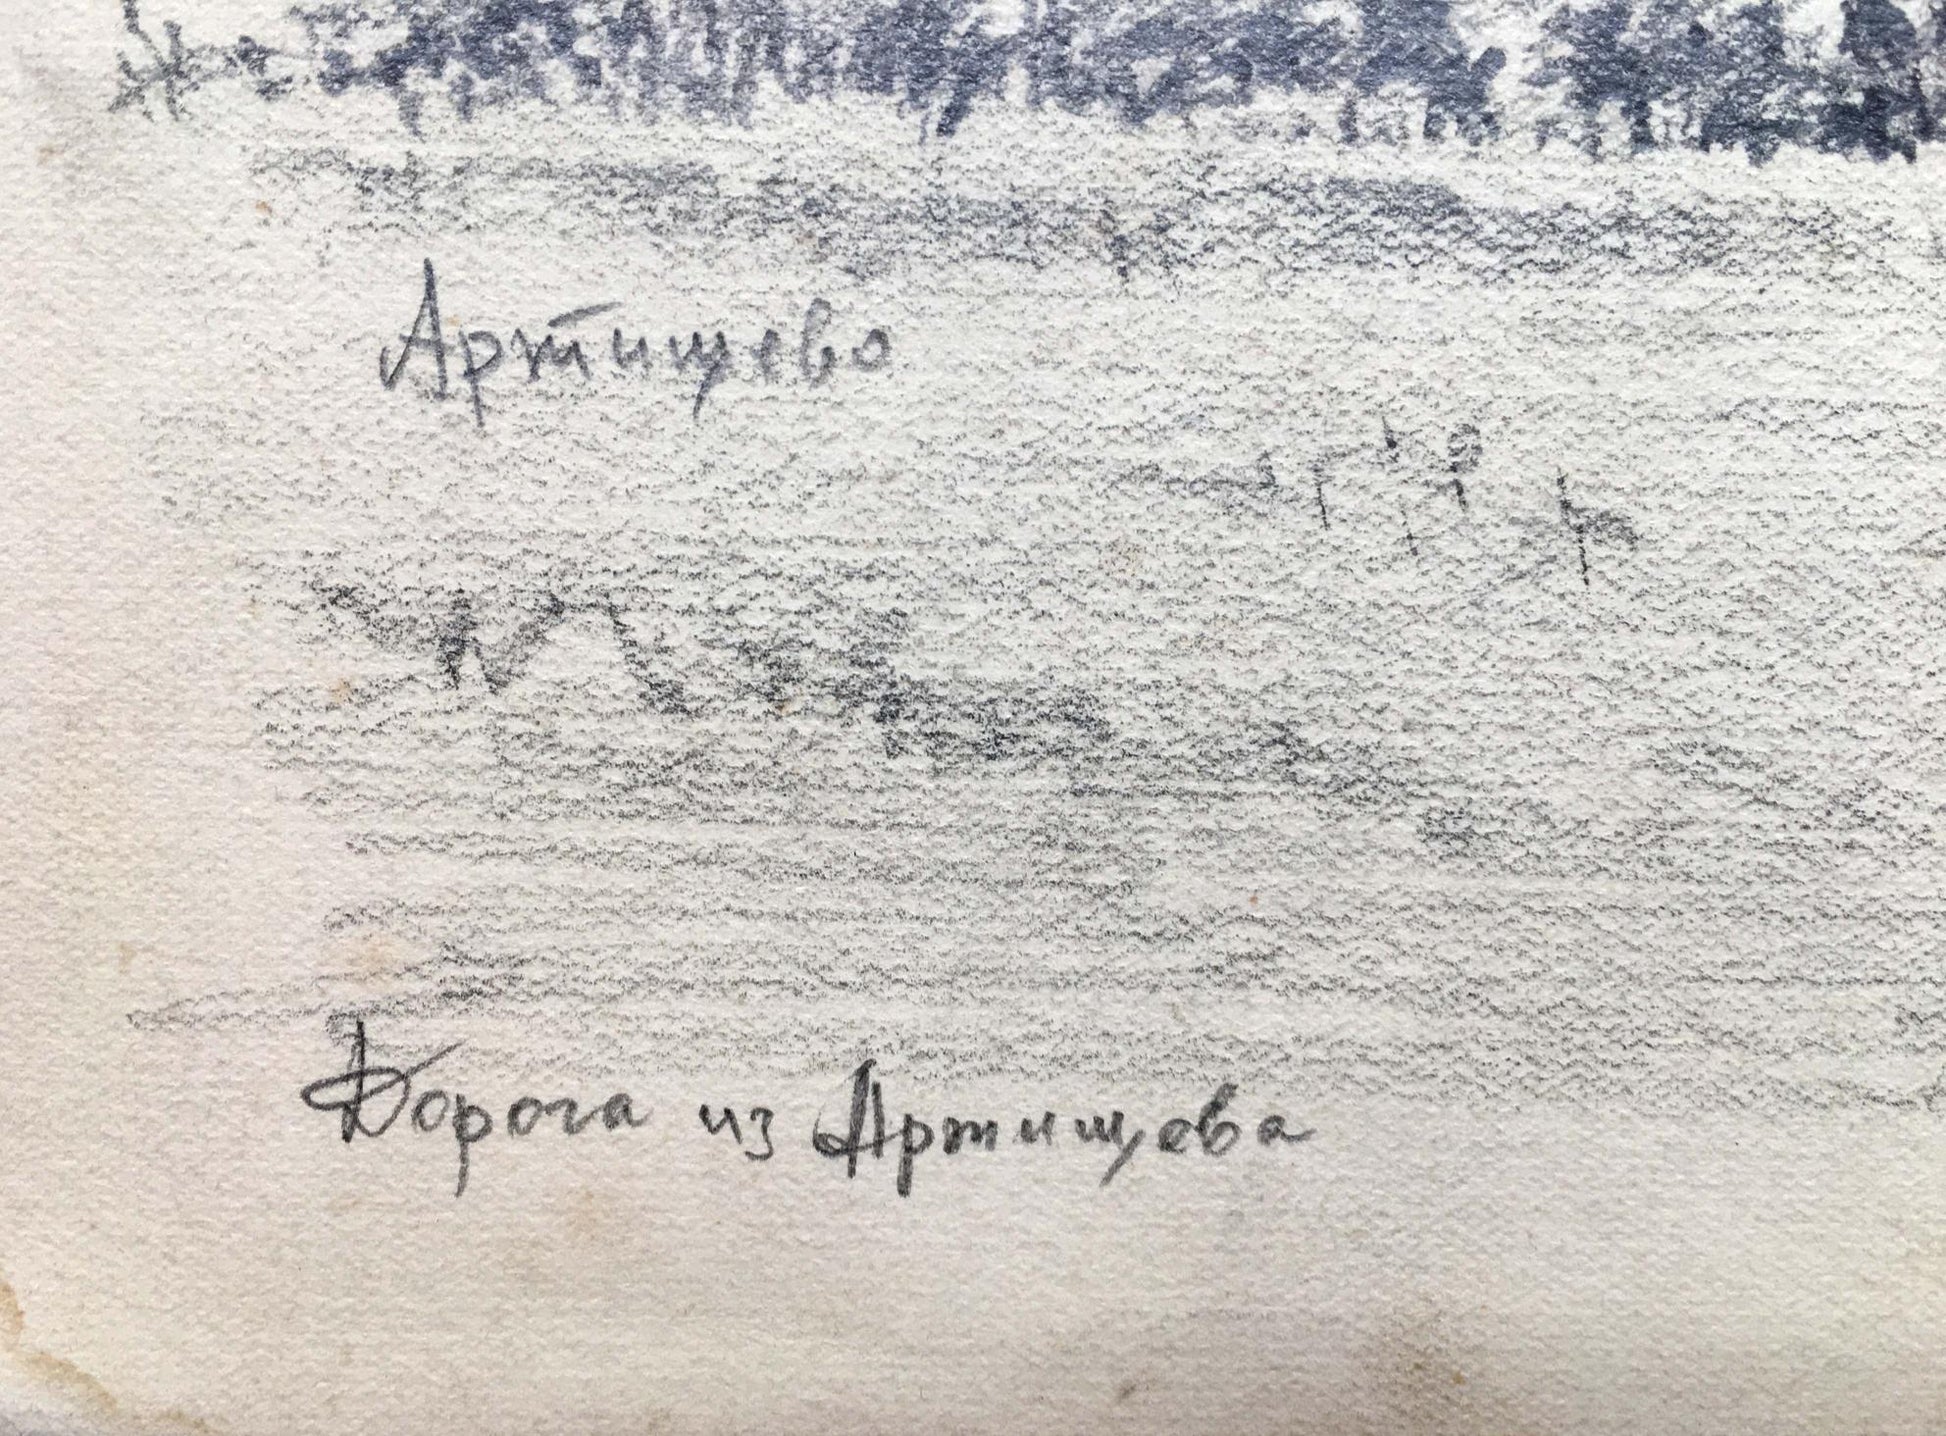 Артищево
Дорога из Артищева